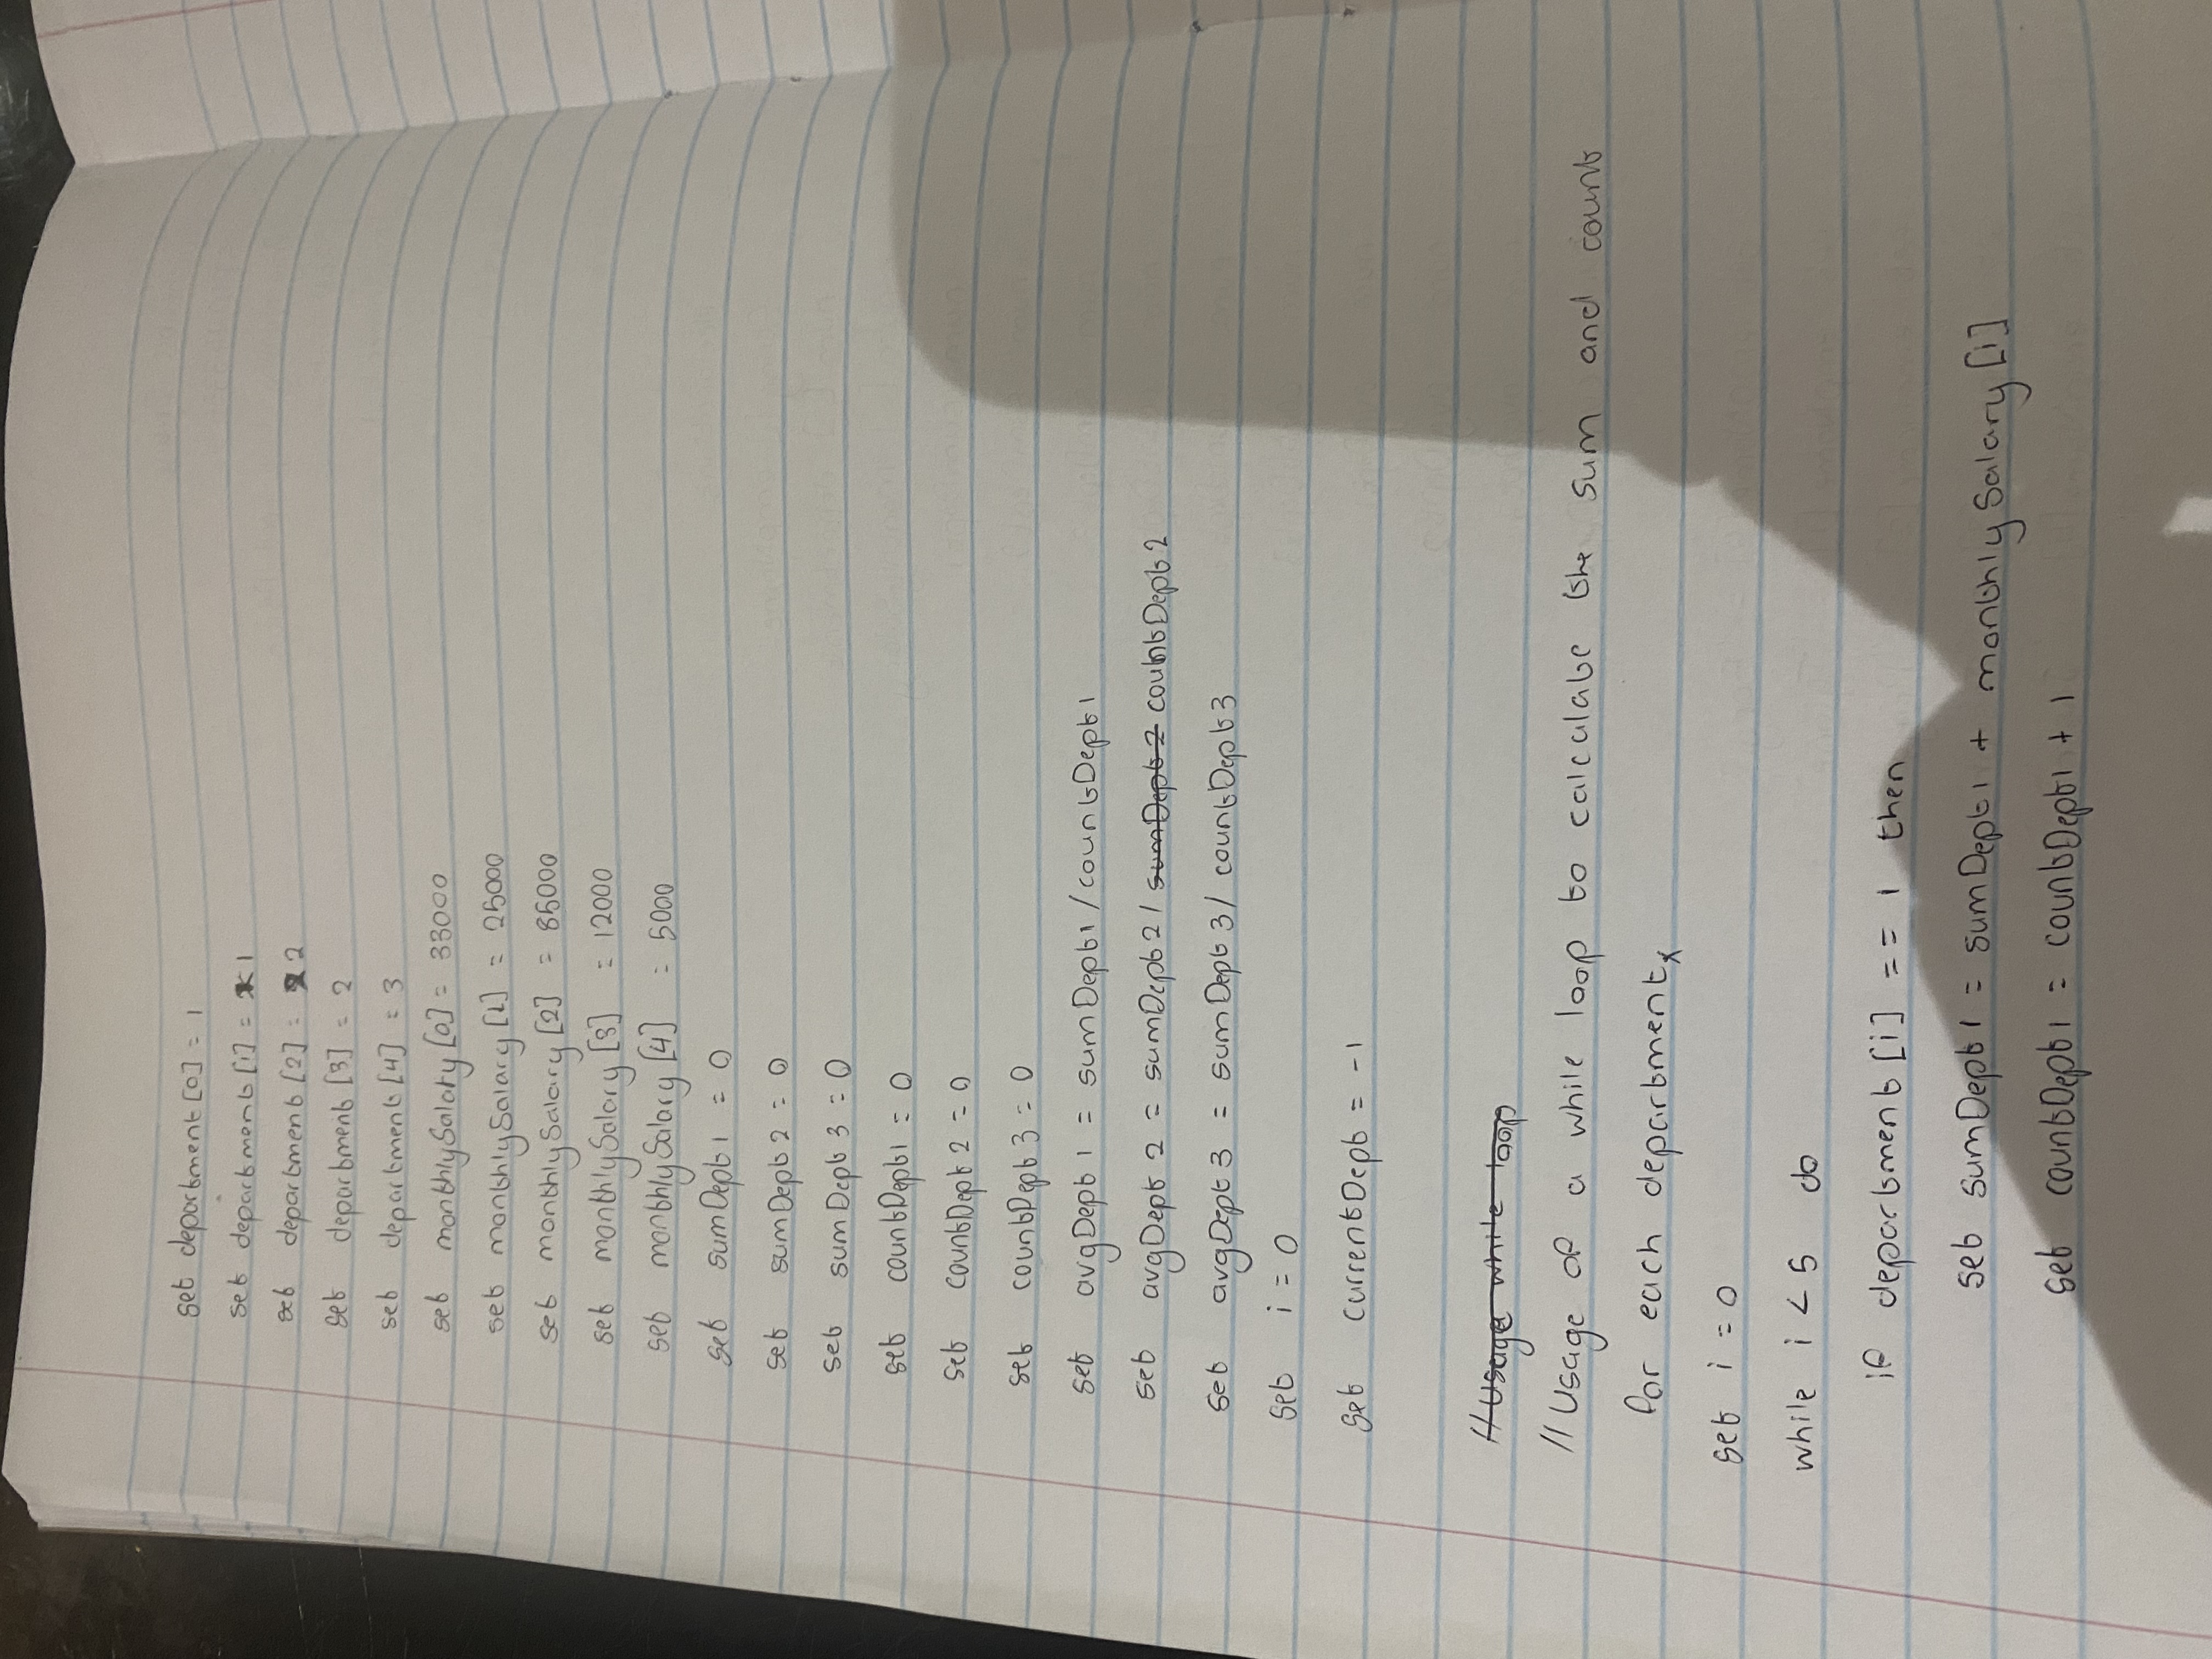 set department [0] = 1
set department [1] = 1
set department [2] = 2
set department [3] = 2
set department [4] = 3
set monthlySalary [0] = 33000
set monthlySalary [1] = 25000
set monthlySalary [2] = 85000
set monthlySalary [3] = 12000
set monthlySalary [4] = 5000
set sumDept1 = 0
set sumDept2 = 0
set sumDept3 = 0
set countDept1 = 0
set countDept2 = 0
set countDept3 = 0
set avgDept1 = sumDept1 / countDept1
set avgDept2 = sumDept2 / sumDept2 countDept2
set avgDept3 = sumDept3 / countDept3
set i = 0
set currentDept = -1
// Usage while loop
// Usage of a while loop to calculate the sum and count
for each department
set i = 0
while i < 5 do
if department [i] == 1 then
set sumDept1 = sumDept1 + monthlySalary [i]
set countDept1 = countDept1 + 1